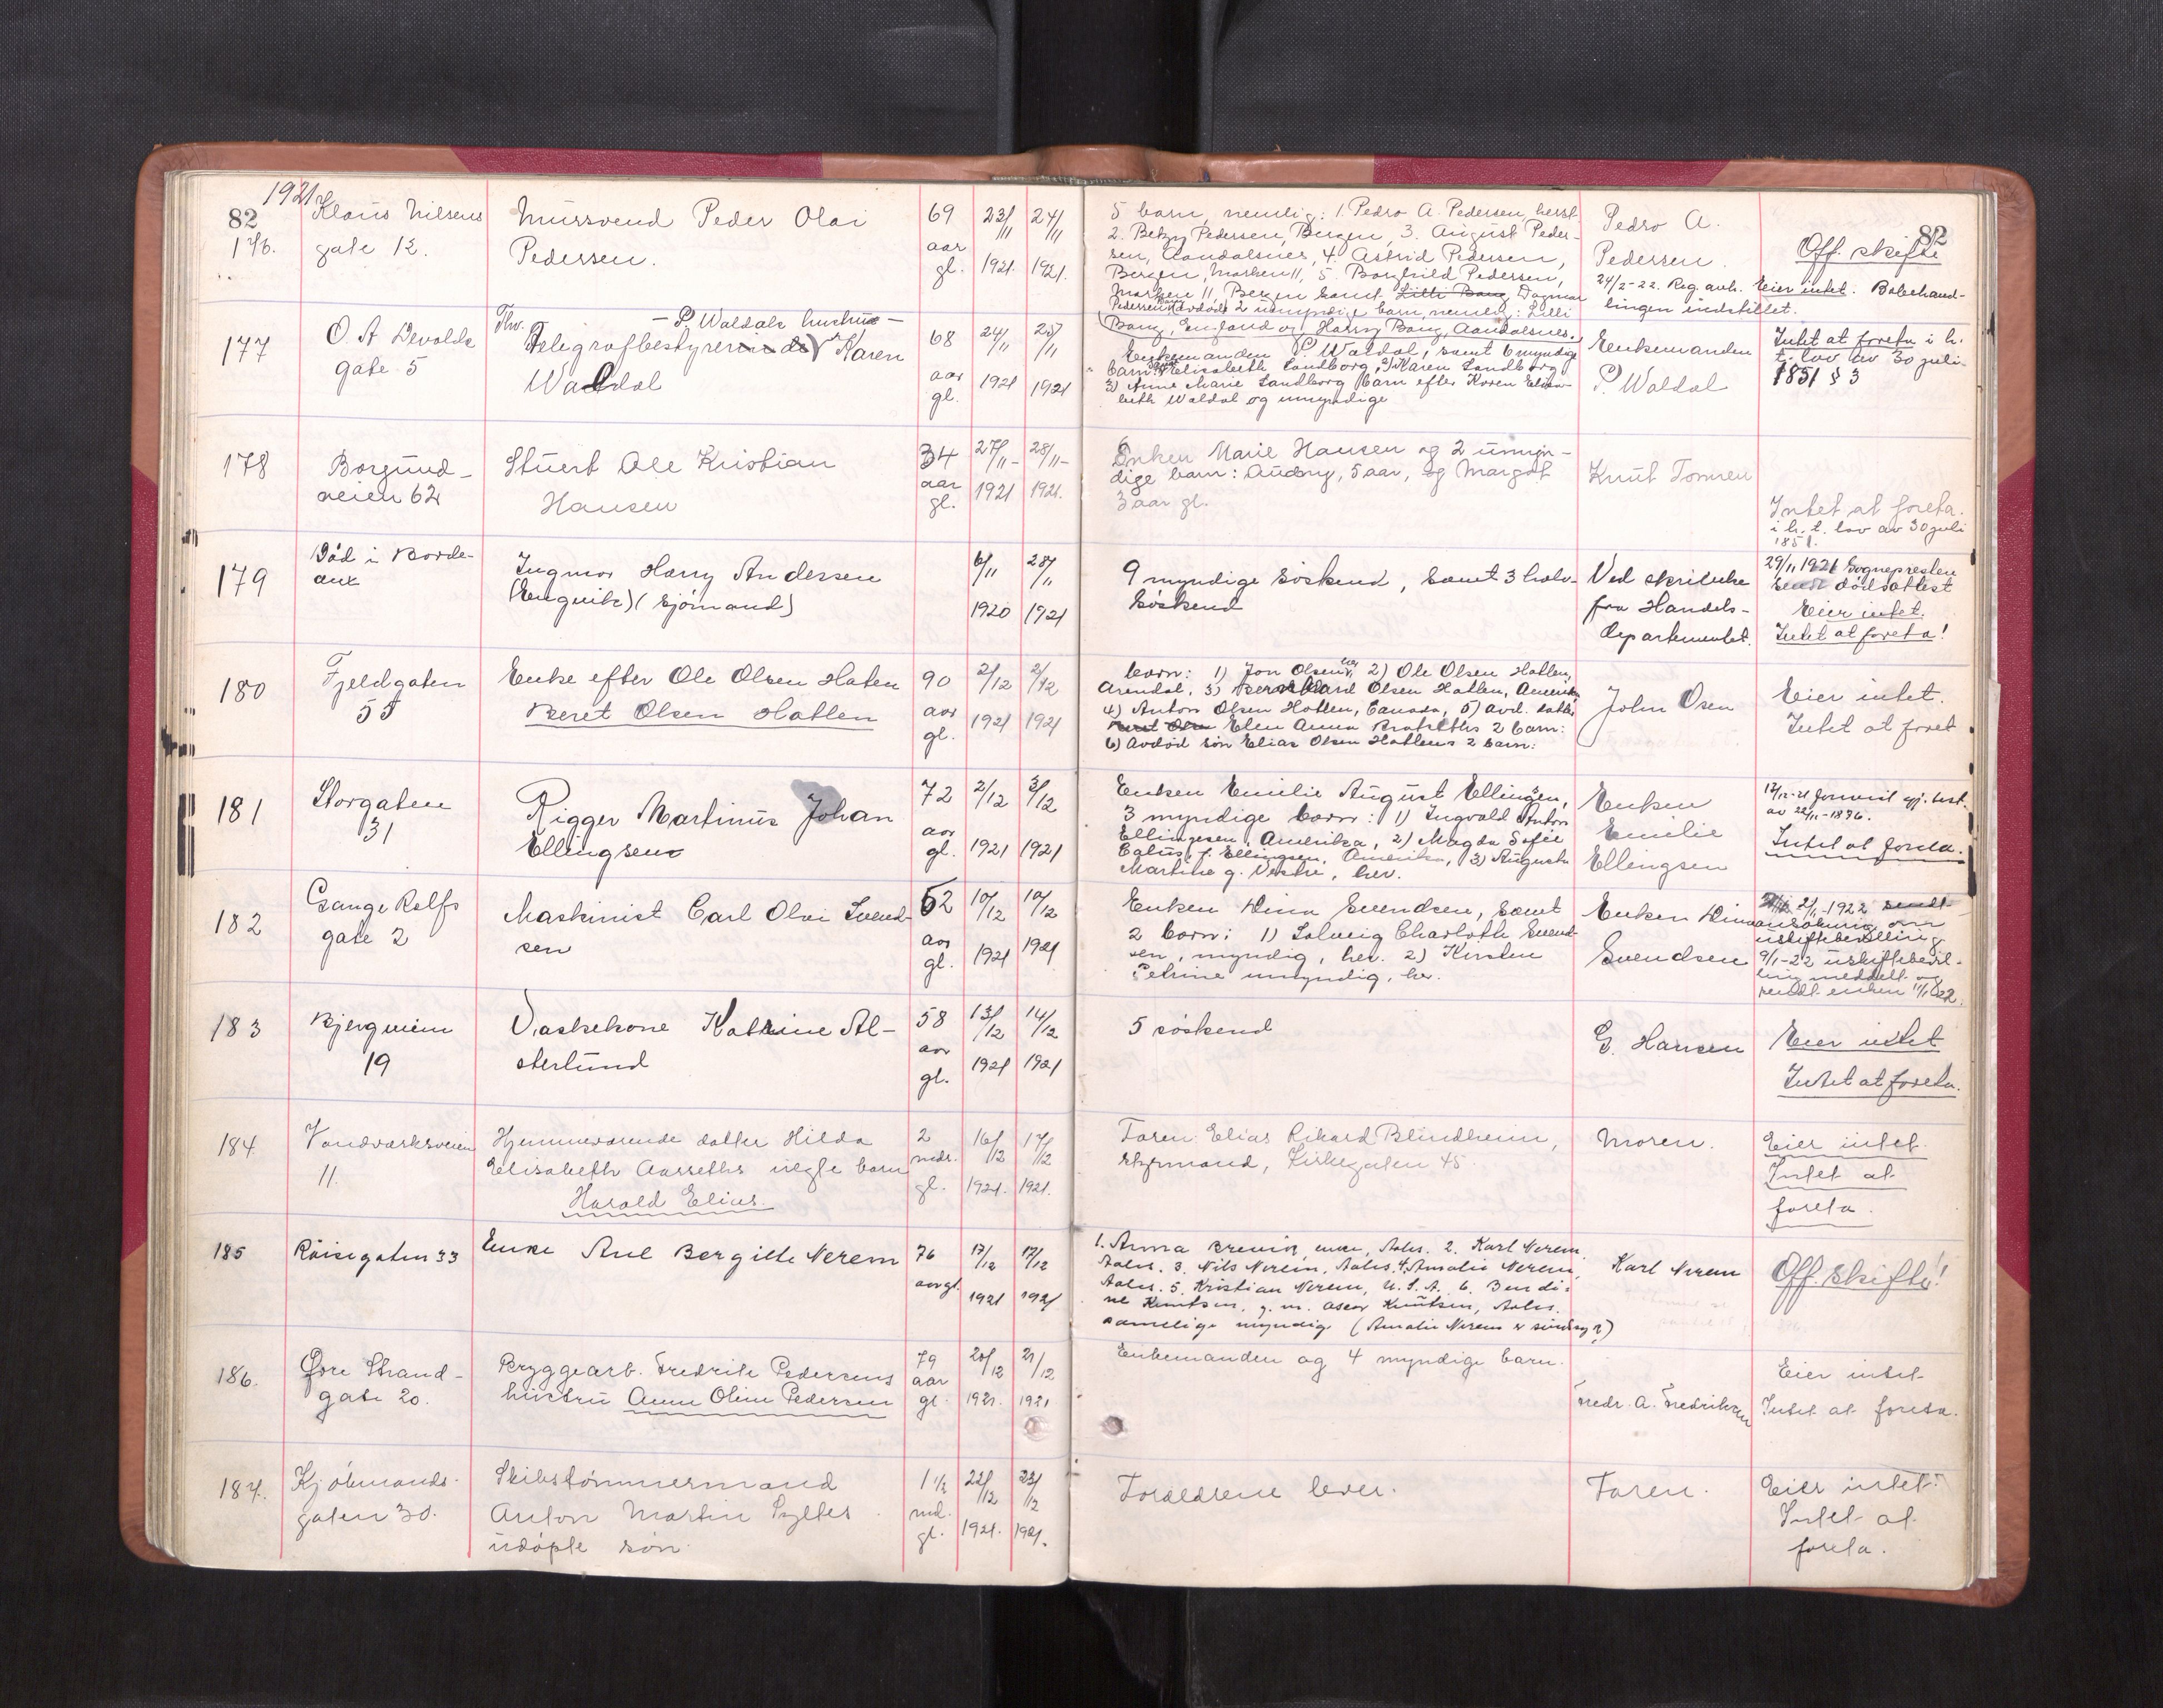 82
1921
82
176.
Klaus Nilsens
gate 12.
Mursvend Peder Olai
Pedersen.
69
aar
gl.
23/11
1921.
24/11
1921.
5 barn, nemlig: 1. Pedro A. Pedersen, herst.
2. Betzy Pedersen, Bergen, 3. August Peder-
sen, Aandalsnes, 4. Astrid Pedersen,
Bergen, Marken 11, 5. Borghild Pedersen,
Marken 11, Bergen samt Lilli Bang Dagmar
Pedersen 2 umyndige barn, nemlig: Lilli
Bang, England og Harry Bang, Aandalsnes.
Pedro A.
Pedersen.
Off. skifte
24/2-22. Reg. avh. Eier intet. Bobehand-
lingen indstillet.
177
O. A Devolds
gate 5
Thv. — P. Waldals hustru —
Telegrafbestyrerinde Karen
Waldal
68
aar
gl.
24/11
1921
25/11
1921
Enkemanden P. Waldal, samt 6 myndige
barn: 1) Elisabeth Landborg, 2) Karen Landborg
3) Anne Marie Landborg barn efter Karen Elisa-
beth Waldal og umyndige
Enkemanden
P. Waldal
Intet at foreta i h.
t. lov av 30 juli
1851 § 3
178
Borgund-
veien 62
Stuert Ole Kristian
Hansen
34
aar
gl.
27/11-
1921
28/11-
1921.
Enken Marie Hansen og 2 umyn-
dige barn: Audny, 5 aar, og Margot
3 aar gl.
Knut Tomren
Intet at foreta.
i h. t. lov av 30 juli
1851.
179
Död i Borde-
aux
Ingmor Harry Andersen
(Enquite) (sjömand)
6/11
1920
28/11
1921
9 myndige söskend, samt 3 halv-
söskend
Ved skrivelse
fra Handels-
departementet.
29/11 1921 Sognepresten
sendt dödsattest
Eier intet.
Intet at foreta!
180
Fjeldgaten
55
Enke efter Ole Olsen Haten
Beret Olsen Hatlen
90
aar
gl.
2/12
1921
2/12
1921
barn: 1) Jon Olsen, her, 2) Ole Olsen Hatlen,
Arendal, 3) Bernhard Olsen Hatlen, Amerika,
4) Anton Olsen Hatlen, Canada, 5) avd. datter
Elen Anna Bratseths 2 barn:
6) Avdöd sön Elias Olsen Hatlens 2 barn:
John Osen
Eier intet.
Intet at foret
181
Storgaten
31
Rigger Martinus Johan
Ellingsen
72
aar
gl.
2/12
1921
3/12
1921
Enken Emilie August Ellingsen,
3 myndige barn: 1) Ingvald Anton
Ellingsen, Amerika, 2) Magda Sofie
f. Ellingsen, Amerika, 3) Augusta
Martine g. Vestre, her.
Enken
Emilie
Ellingsen
av 22/11-1896.
Intet at foreta.
182
Gange Rolfs
gate 2
Maskinist Carl Olai Svend-
sen
62
aar
gl.
10/12
1921
10/12
1921
Enken Dina Svendsen, samt
2 barn: 1) Solveig Charlotte Svend-
sen, myndig, her. 2) Kirsten
Petrine umyndig, her.
Enken Dina
Svendsen
2/1-1922 sendt
ansökning om
uskiftebevilling
9/1-22 uskiftebevil-
ling meddelt og
sendt enken 11/1 22.
183
Bjergveien
19
Vaskekone Katrine Al-
sterlund
58
aar
gl.
13/12
1921
14/12
1921
5 söskend
G. Hansen
Eier intet
Intet at foreta.
184.
Vandværksveien
11.
Hjemmeværende datter Hilda
Elisabeth Aarseths uegte barn
Harald Elias.
2
mdr.
gl.
16/12
1921.
17/12
1921.
Faren Elias Rikard Blindheim,
styrmand, Kirkegaten 45.
Moren.
Eier intet.
Intet at
foreta.
185
Röisegaten 33
Enke Ane Bergitte Nerem
76
aar gl.
17/12
1921
17/12
1921
1. Anna Brevik, enke, Aales. 2. Karl Nerem,
Aales. 3. Nils Nerem, Aales. 4. Amalie Nerem,
Aales. 5. Kristian Nerem, U. S. A. 6. Bendi-
ne Knutsen, g. m. Oscar Knutsen, Aales.
samtlige myndig (Amalie Nerem er sindsyg?)
Karl Nerem
Off. skifte!
186.
Øvre Strand-
gate 20.
Bryggearb. Fredrik Pedersens
hustru Anne Oline Pedersen
79
aar
gl.
20/12
1921.
21/12
1921
Enkemanden og 4 myndige barn.
Fredr. A. Fredriksen
Eier intet
Intet at foreta.
187.
Kjöbmands-
gaten 30.
Skibstömmermand
Anton Martin Syltes
udöpte sön.
1 1/2
md.
gl.
22/12
1921.
23/12
1921.
Foreldrene lever.
Faren.
Eier intet.
Intet at
foreta.